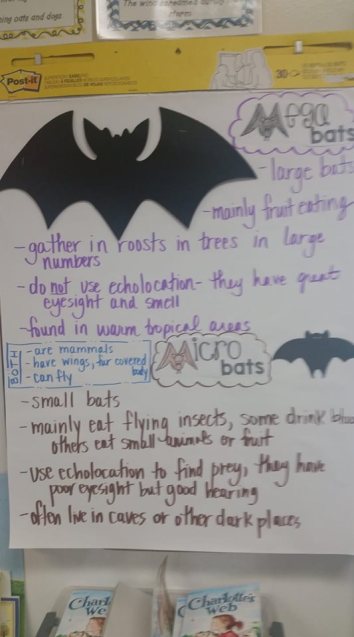 ning cats and dogs
The wind
Post-it
30
Mega
bats
- large bats
- mainly fruit eating
- gather in roosts in trees in large
numbers
- do not use echolocation - they have great
eyesight and smell
- found in warm tropical areas
BOTH
- are mammals
- have wings, fur covered
body
- can fly
Micro
bats
- small bats
- mainly eat flying insects, some drink
others eat small animals or fruit
- use echolocation to find prey, they have
poor eyesight but good hearing
- often live in caves or other dark places
Charl
We
Charlotte's
Web